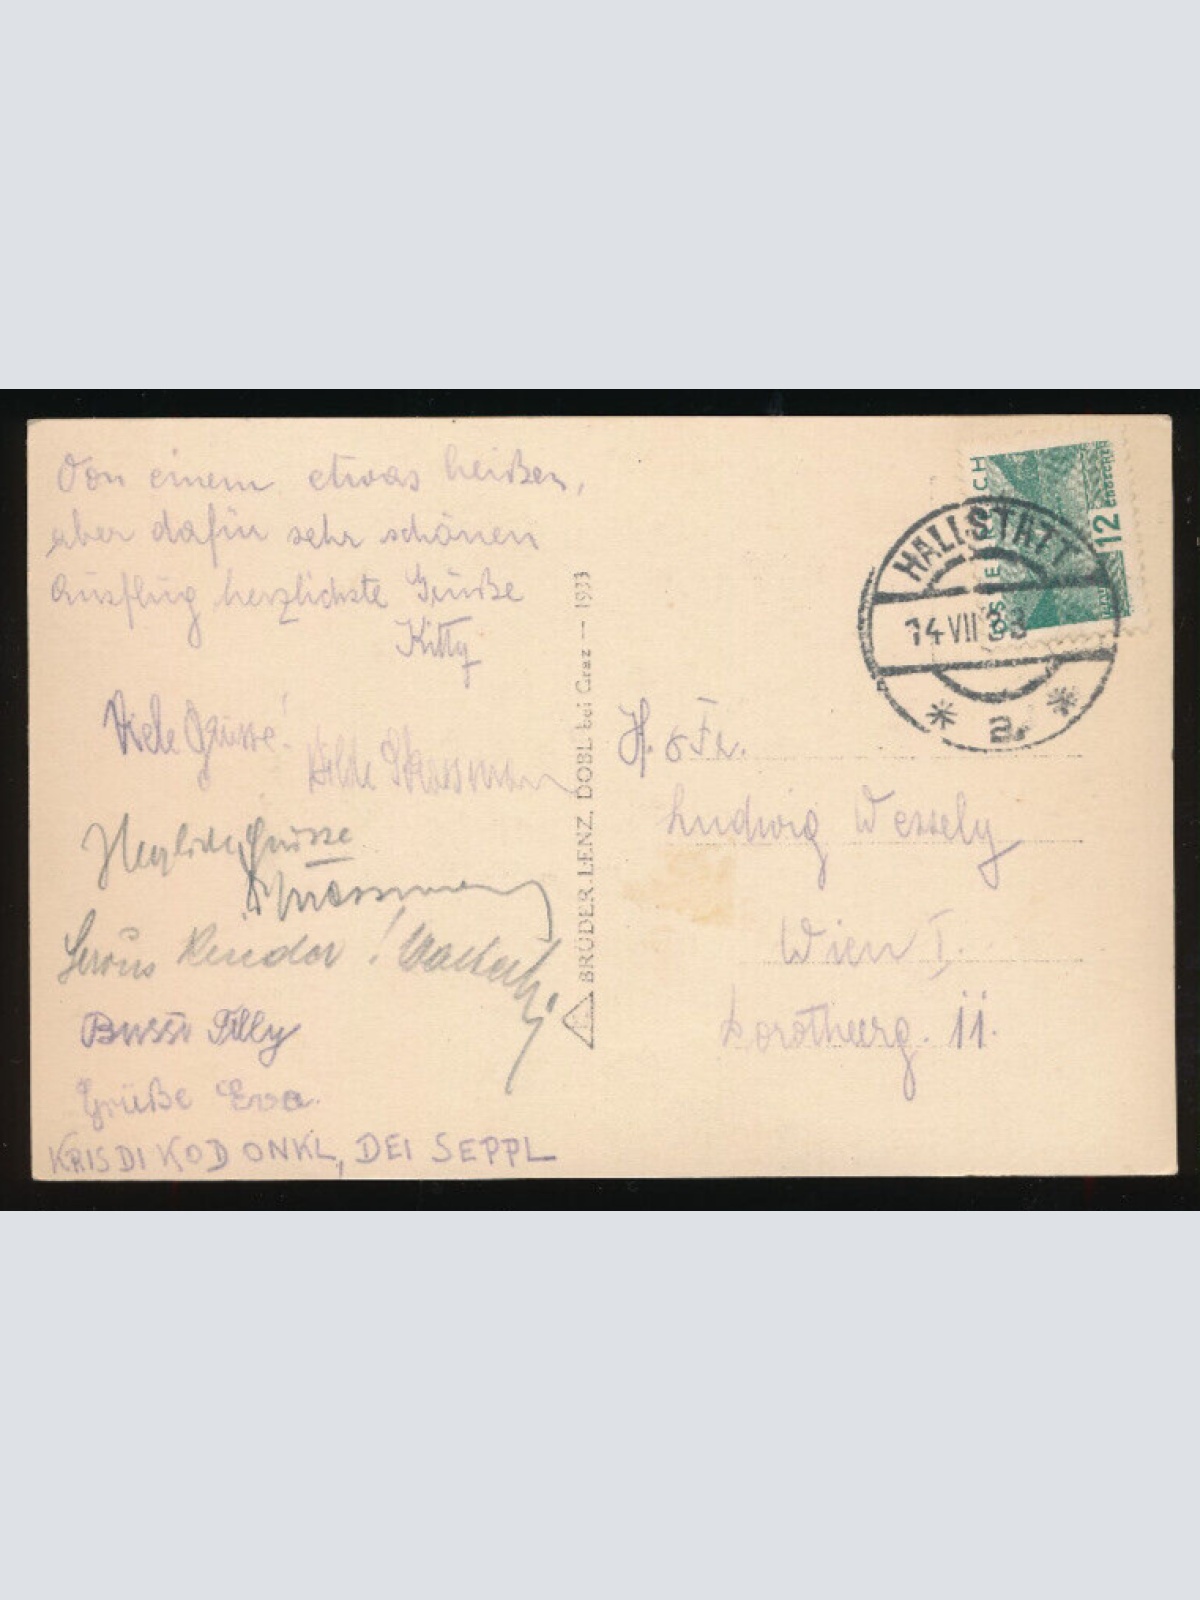 Von einem etwas heißen,
aber dafür sehr schönen
Ausflug herzlichste Grüße
Kitty
Viele Grüsse!
Hilde Strassmann
Herzliche Grüsse
Strassmann
Servus Kinder!
Bussi Tilly
Grüße Eva.
KRISDI KOD ONKL, DEI SEPPL
BRÜDER LENZ, DOBL bei Graz — 1933
ÖSTERREICH
12
GROSCHEN
HALLSTATT
14 VII 33
a
H. & Fr.
Ludwig Wessely
Wien I.
Dorotheerg. 11.